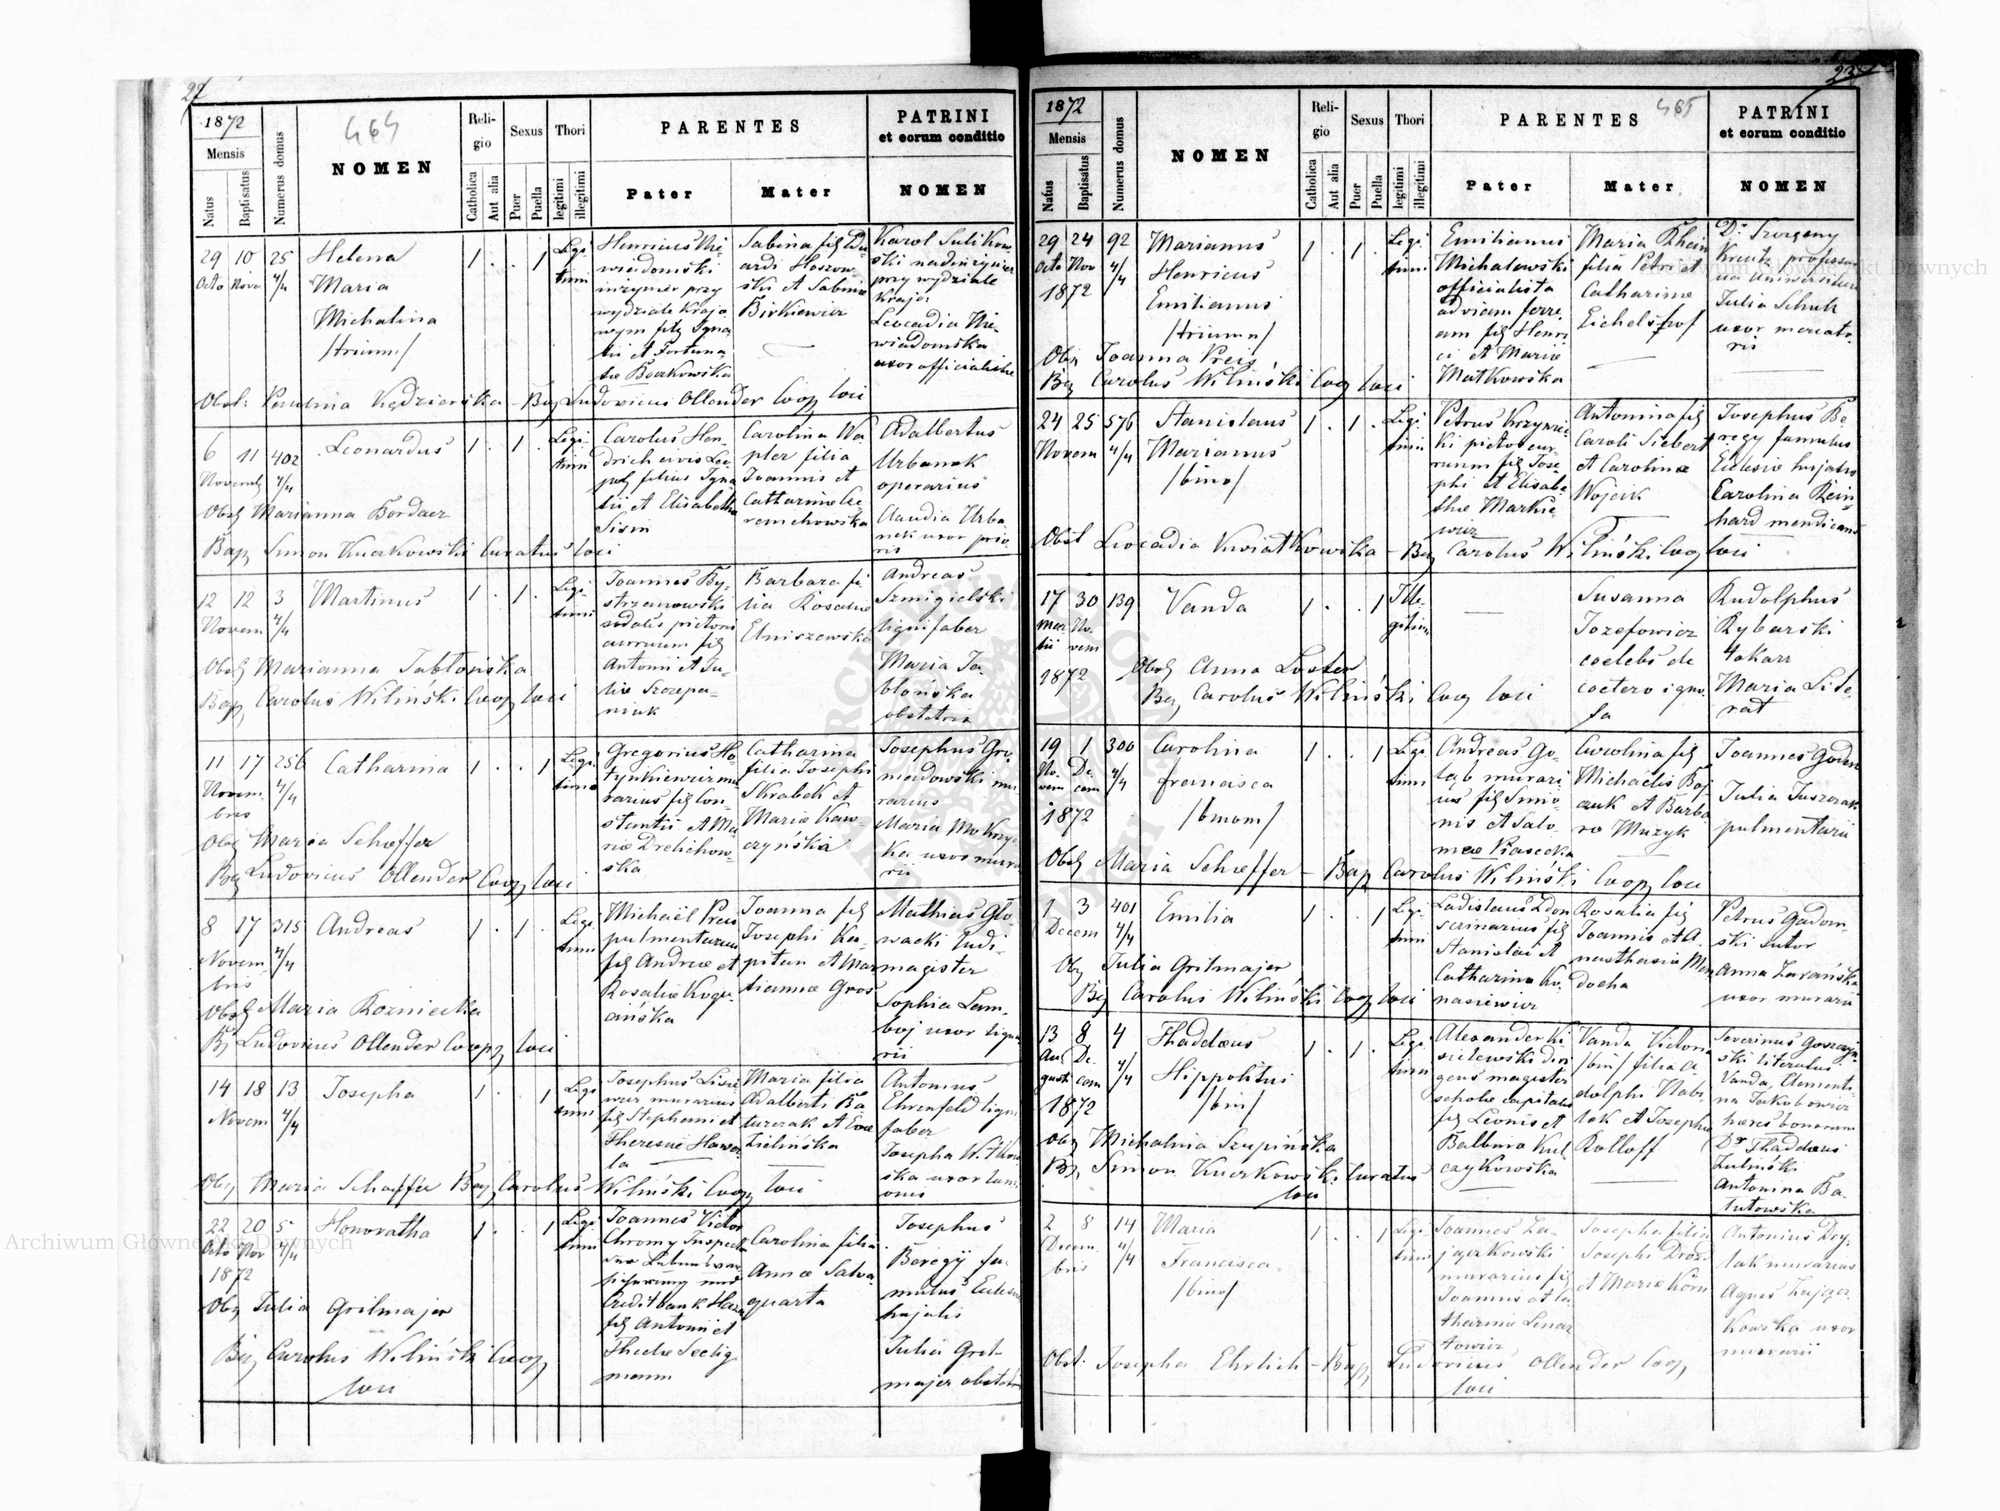 27
1872
464
Mensis
Natus
Baptisatus
Numerus domus
NOMEN
Religio
Catholica
Aut alia
Sexus
Puer
Puella
Thori
legitimi
illegitimi
PARENTES
Pater
Mater
PATRINI
et eorum conditio
NOMEN
29 10 25 Helena 1 . . 1 Legi
Octo Nove 4/4 Maria timi
Michalina
/trium/
Henricus Nie-
wiadomski
inżynier przy
wydziale krajo
wym fil Igna
tii et Fortuna
tae Boczkowska
Sabina fil Edu
ardi Hoszow-
ski et Sabinae
Birkiewicz
Karol Sulikow-
ski nadinżynier
przy wydziale
kraj.
Leocadia Nie-
wiadomska
uxor officialistae
Obst: Paulina Kędzierska - Bap Ludovicus Ollender Coop loci
6 11 402 Leonardus 1 . 1 . Legi
Novemb 4/4 timi
Carolus Hen-
drich civis Leo
pol filius Igna
tii et Elisabetha
Carolina Wa
pler filia
Joannis et
Catharinae
Adalbertus
Urbanek
operarius
Claudia Urba
nek uxor prio
ris
Obst Marianna Bordacz
Bap Simon Kuczkowski Curatus loci
12 12 3 Martinus 1 . 1 . Legi
Novem 4/4 timi
Joannes By-
strzanowski
sodalis pictoris
curruum fil
Antonii et Ju-
liae Szczepa-
niuk
Barbara fi
lia Rosaliae
Elniszewska
Andreas
Szmigielski
lignifaber
Maria Ja
błońska
obstetrix
Obst Marianna Jabłońska
Bap Carolus Wiliński Coop loci
11 17 256 Catharina 1 . . 1 Legi
Novem 4/4 timi
bris
Gregorius Ho-
tynkiewicz mu
rarius fil Con-
stantii et Ma-
riae Drelichow-
ska
Catharina
filia Josephi
Skrabek et
Mariae Kaw-
czyńska
Josephus Gro
madowski mu
rarius
Maria Mokrzy-
ka uxor mura
rii
Obst Maria Scheffer
Bap Ludovicus Ollender Coop loci
8 17 315 Andreas 1 . 1 . Legi
Novem 4/4 timi
bris
Michaël Preis
pulmentarius
fil Andreae et
Rosaliae
Joanna fil
Josephi Ka-
pitan et Mar
iannae Gros
Mathias Gło-
wacki ludi
magister
Sophia Lam-
boj uxor ligna
rii
Obst Maria Kozniecka
Bap Ludovicus Ollender Coop loci
14 18 13 Josepha 1 . . 1 Legi
Novem 4/4 timi
Josephus
murarius
fil Stephani et
Theresiae Hawer
la
Maria filia
Adalberti Ba
turczak et Evae
Zielińska
Antonius
Ehrenfeld ligni
faber
Josepha
ska uxor
Obst Maria Scheffer Bap Carolus Wiliński Coop loci
22 20 5 Honoratha 1 . . 1 Legi
Octo Nov 4/4 timi
1872
Joannes Victor
Chromy Inspector
fil Antonii et
Theclae Seelig
mann
Carolina filia
Annae Salva
quarta
Josephus
Beregÿ fa-
mulus Ecclesiae
hujatis
Julia Gril-
majer obstetrix
Obst Julia Grilmajer
Bap Carolus Wiliński Coop
loci
23
1872
465
Mensis
Natus
Baptisatus
Numerus domus
NOMEN
Religio
Catholica
Aut alia
Sexus
Puer
Puella
Thori
legitimi
illegitimi
PARENTES
Pater
Mater
PATRINI
et eorum conditio
NOMEN
29 24 92 Marianus 1 . 1 . Legi
Octo Nov 4/4 Henricus timi
1872 Emilianus
/trium/
Emilianus
Michalewski
officialista
ad viam ferre
am fil Henri
ci et Mariae
Matkowska
Maria Rhein
filia Petri et
Catharinae
Eichelsdorf
Dr
Kreutz professor
Universitatis
Julia Schulz
uxor mercato-
ris
Obst Joanna Preis
Bap Carolus Wiliński Coop loci
24 25 576 Stanislaus 1 . 1 . Legi
Novem 4/4 Marianus timi
/bino/
Petrus
ki pictor cur-
ruum fil Jose
phi et Elisabe
thae Markie-
wicz
Antonina fil
Caroli Siebert
et Carolinae
Wojcik
Josephus Be
regy famulus
Ecclesiae hujatis
Carolina Rein
hard mendicans
Obst Leocadia Kwiatkowska - Bap Carolus Wiliński Coop loci
17 30 139 Vanda 1 . . 1 Ille
Mar No- gitim
tii vem
1872
Susanna
Jozefowicz
coelebs de
coetero igno-
ta
Rudolphus
Rybarski
tokarz
Maria Lite-
rat
Obst Anna Loster
Bap Carolus Wiliński Coop loci
19 1 300 Carolina 1 . . 1 Legi
No- De- 4/4 Francisca timi
vem cem
1872 /binom/
Andreas Go-
łąb murari
us fil Simo-
nis et Salo-
meae Piasecka
Carolina fil
Michaelis Boj
czuk et Barba
ra Muzyk
Joannes
Julia Juszczak
pulmentarii
Obst Maria Scheffer - Bap Carolus Wiliński Coop loci
1 3 401 Emilia 1 . . 1 Legi
Decem 4/4 timi
Ladislaus
scrinarius fil
Stanislai et
Catharinae Ko-
nasiewicz
Rosalia fil
Joannis et A-
nasthasiae
Petrus Gadom-
ski sutor
Anna Zarańska
uxor murarii
Obst Julia Grilmajer
Bap Carolus Wiliński Coop loci
13 8 4 Thaddæus 1 . 1 . Legi
Au- De- 4/4 Hippolitus timi
gusti cem
1872 /bin/
Alexander Ki
sielewski diri
gens magister
scholae capitalis
fil Leonis et
Balbinae Kul
czykowska
Vanda Victoria
/bin/ filia A
dolphi Nabi
lak et Josephae
Rolloff
Severinus Goszczyń-
ski literatus
Vanda, Clementi
na Jakubowicz
haeres bonorum
Dr Thaddaeus
Żuliński
Antonina Ba-
tutowska
Obst Michalina Szupińska
Bap Simon Kuczkowski Curatus
loci
2 8 14 Maria 1 . . 1 Legi
Decem- 4/4 Francisca timi
bris /bino/
Joannes Za-
jączkowski
murarius fil
Joannis et Ca
tharinae Lenar
towicz
Josepha filia
Josephi Drozd
et Mariae Körn
Antonius Dry-
lak murarius
Agnes Zającz
kowska uxor
murarii
Obst: Josepha Ehrlich - Bap Ludovicus Ollender Coop
loci
Archiwum Główne Akt Dawnych
Archiwum Główne Akt Dawnych